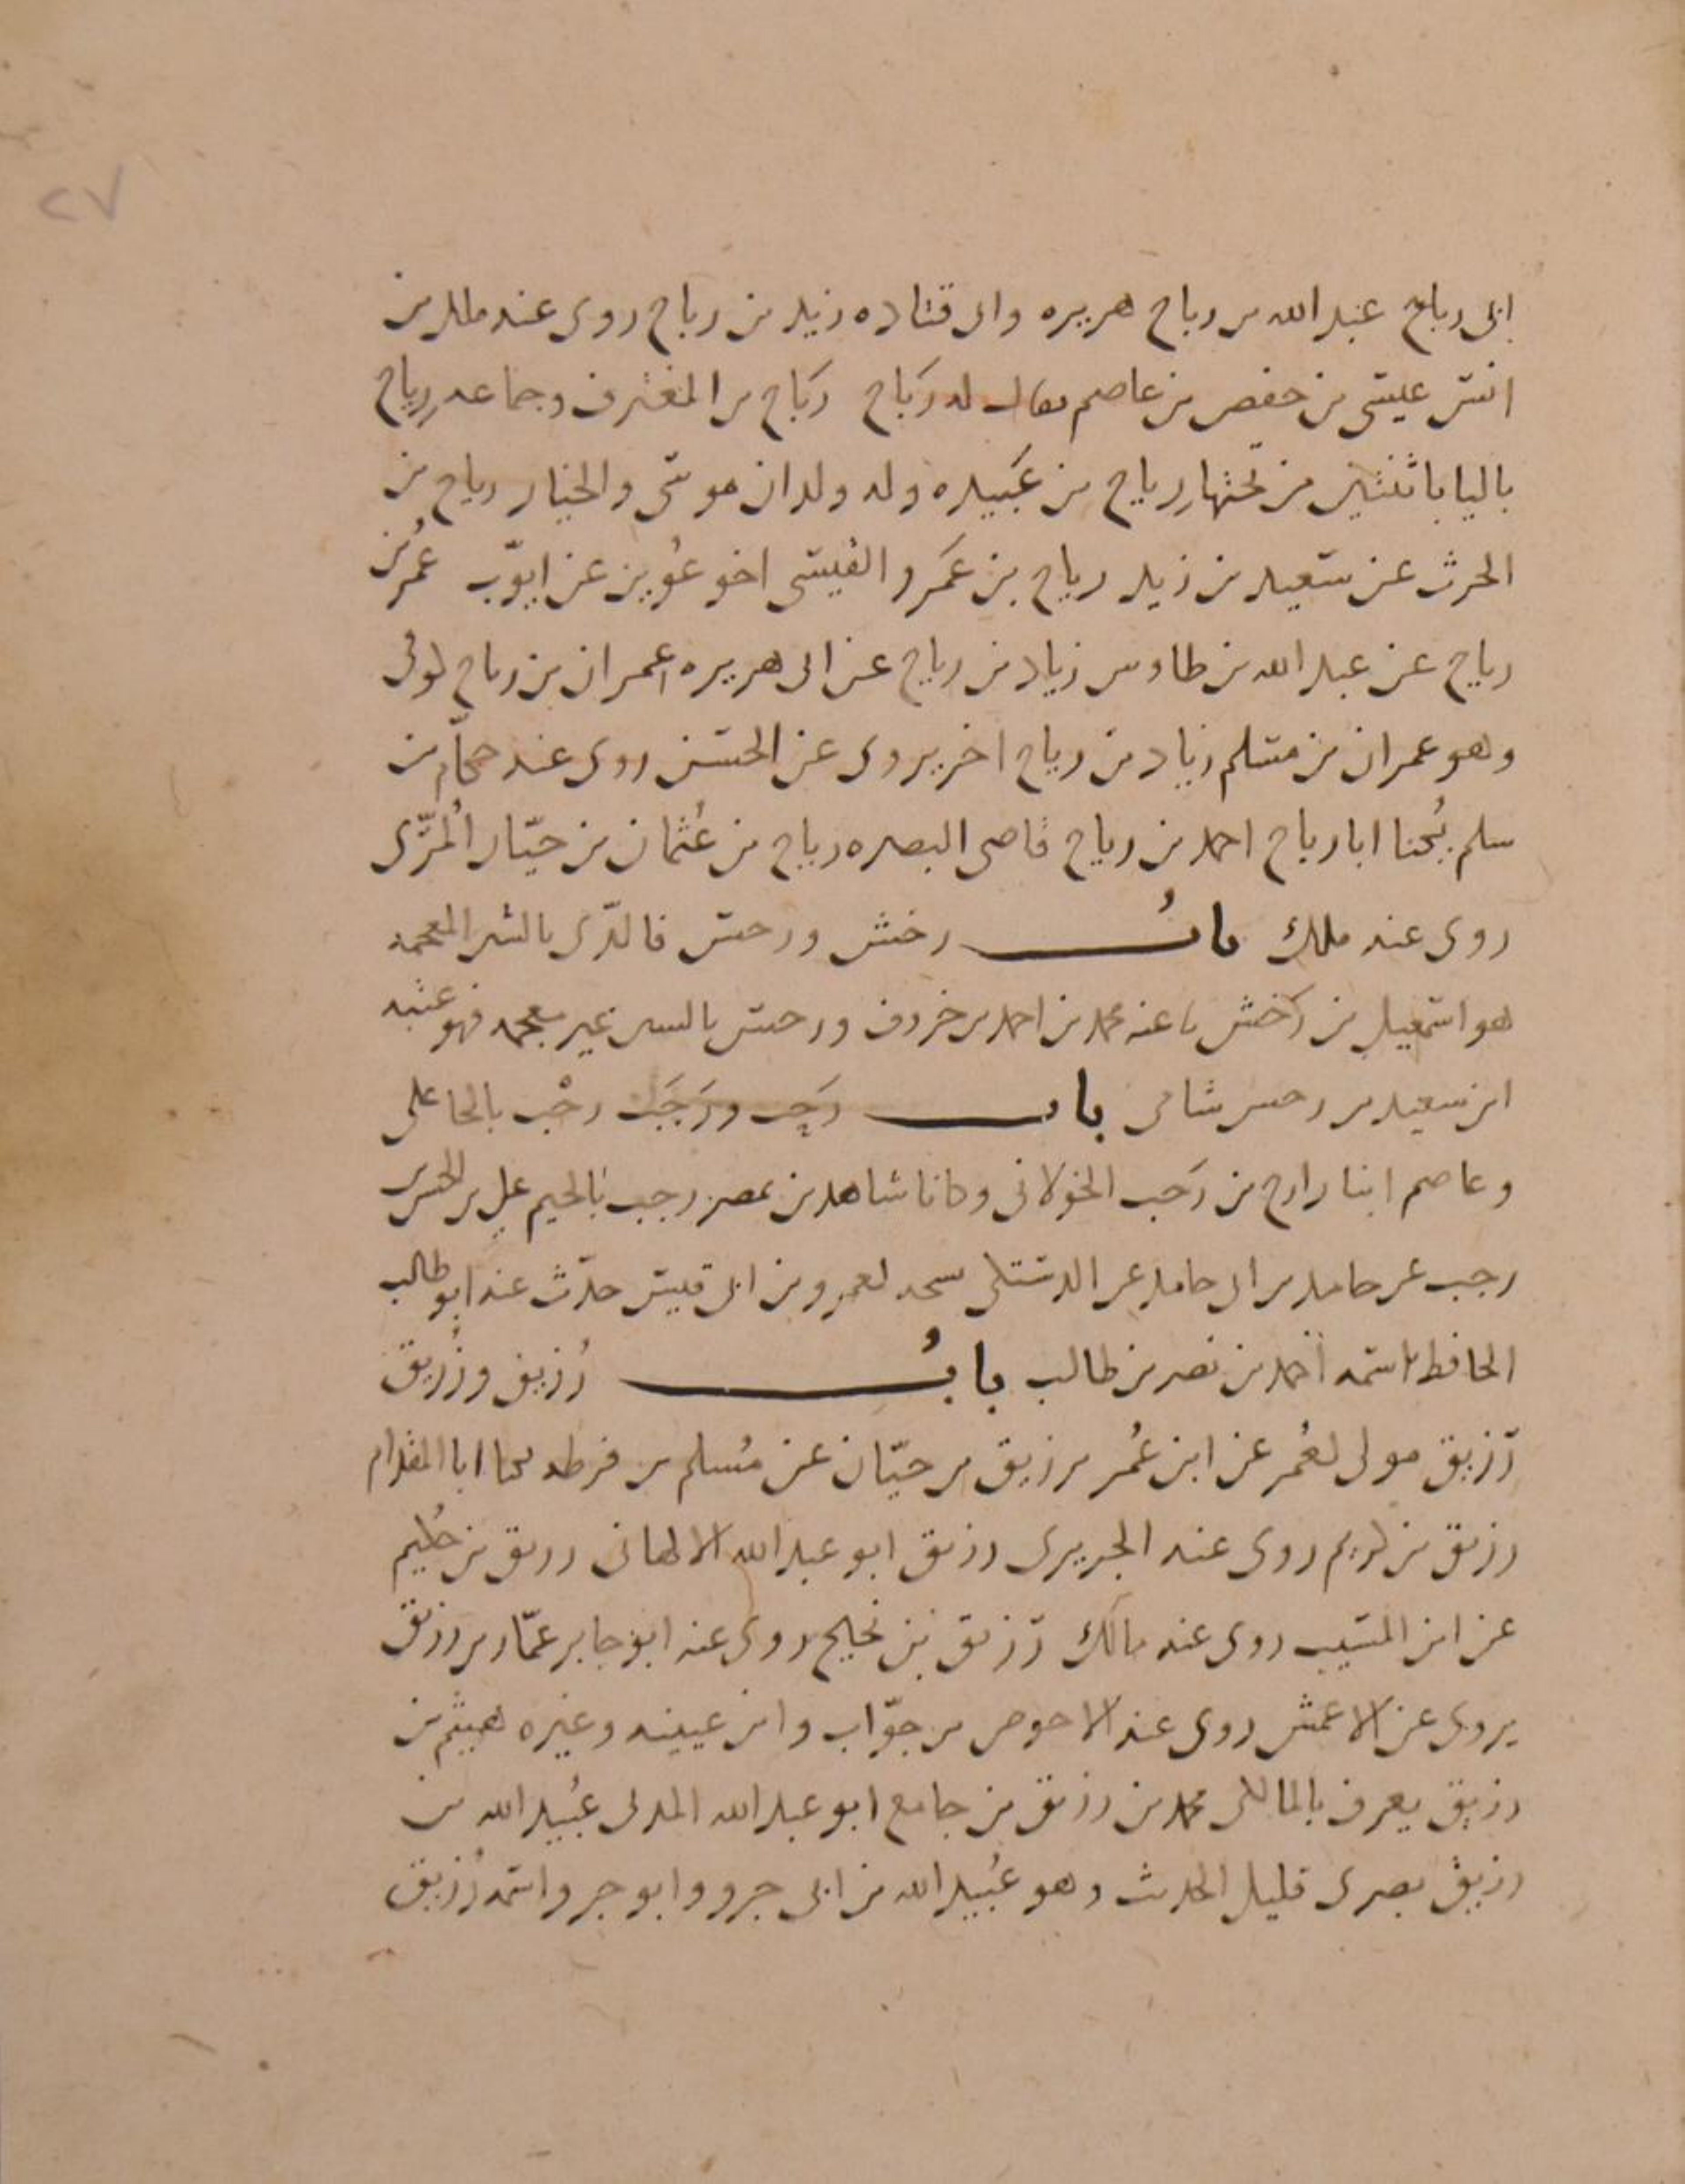 ٢٧
ابى رباح عبد الله بن رباح هريره وابى قتاده زيد بن رباح روى عنه ملك بن
انس عيسى بن حفص بن عاصم يقال له رَباح رَباح بن المغترف وجماعه رِرياح
باليا باثنتين من تحتها رِرياح بن عَبيده وله ولدان موسى والخيار رياح بن
الحرث عن سعيد بن زيد رياح بن عَمرو القيسى اخو عُوين عن ايوّب عُمر بن
رياح عن عبد الله بن طاوس زياد بن رياح عن ابى هريره عمران بن رياح كوفى
وهو عمران بن مسلم زياد بن رياح اخر يروى عن الحسن روى عنه حكّام بن
سلم يُكنا ابا رياح احمد بن رياح قاضى البصره رياح بن عُثمان بن حيّان المُرّى
روى عنه ملك بابُ رخش ورحس فالذّى بالشين المعجمه
هو اسمعيل بن رَخش نا عنه محمد بن احمد بن خروف ورحس بالسين غير معجمه فهو عتبه
ابن سعيد بن رحس شامى باب رَحِب ورَجَب رحْب بالحا على
وعاصم ابنا رازح بن رَحب الخولانى وكانا شاهدين بمصر رجب بالجيم على بن الحسن بن
رجب عن حامد بن ابى حامد عن الدشتكى نسخه لعمرو بن ابى قيس حدّث عنه ابو طالب
الحافظ اسمه احمد بن نصر بن طالب بابُ رُزيق وزُريق
رُزيق مولى لعُمر عن ابن عُمر رزيق بن حيّان عن مُسلم بن قرظه يكنا ابا المقدام
رزيق بن كريم روى عنه الجريرى رزيق ابو عبد الله الالهانى رزيق بن حُكيم
عن ابن المسَيب روى عنه مالك رُزيق بن نجيح روى عنه ابو جابر عمّار بن رزيق
يروى عن الاعمش روى عنه الاحوص بن جوّاب وابن عيينه وغيره هيثم بن
رزيق يعرف بالمالكى محمد بن رزيق بن جامع ابو عبد الله المدنى عُبيد الله بن
رزيق بصرى قليل الحديث وهو عُبيد الله بن ابى جرو وابو جرو اسمه رُزيق